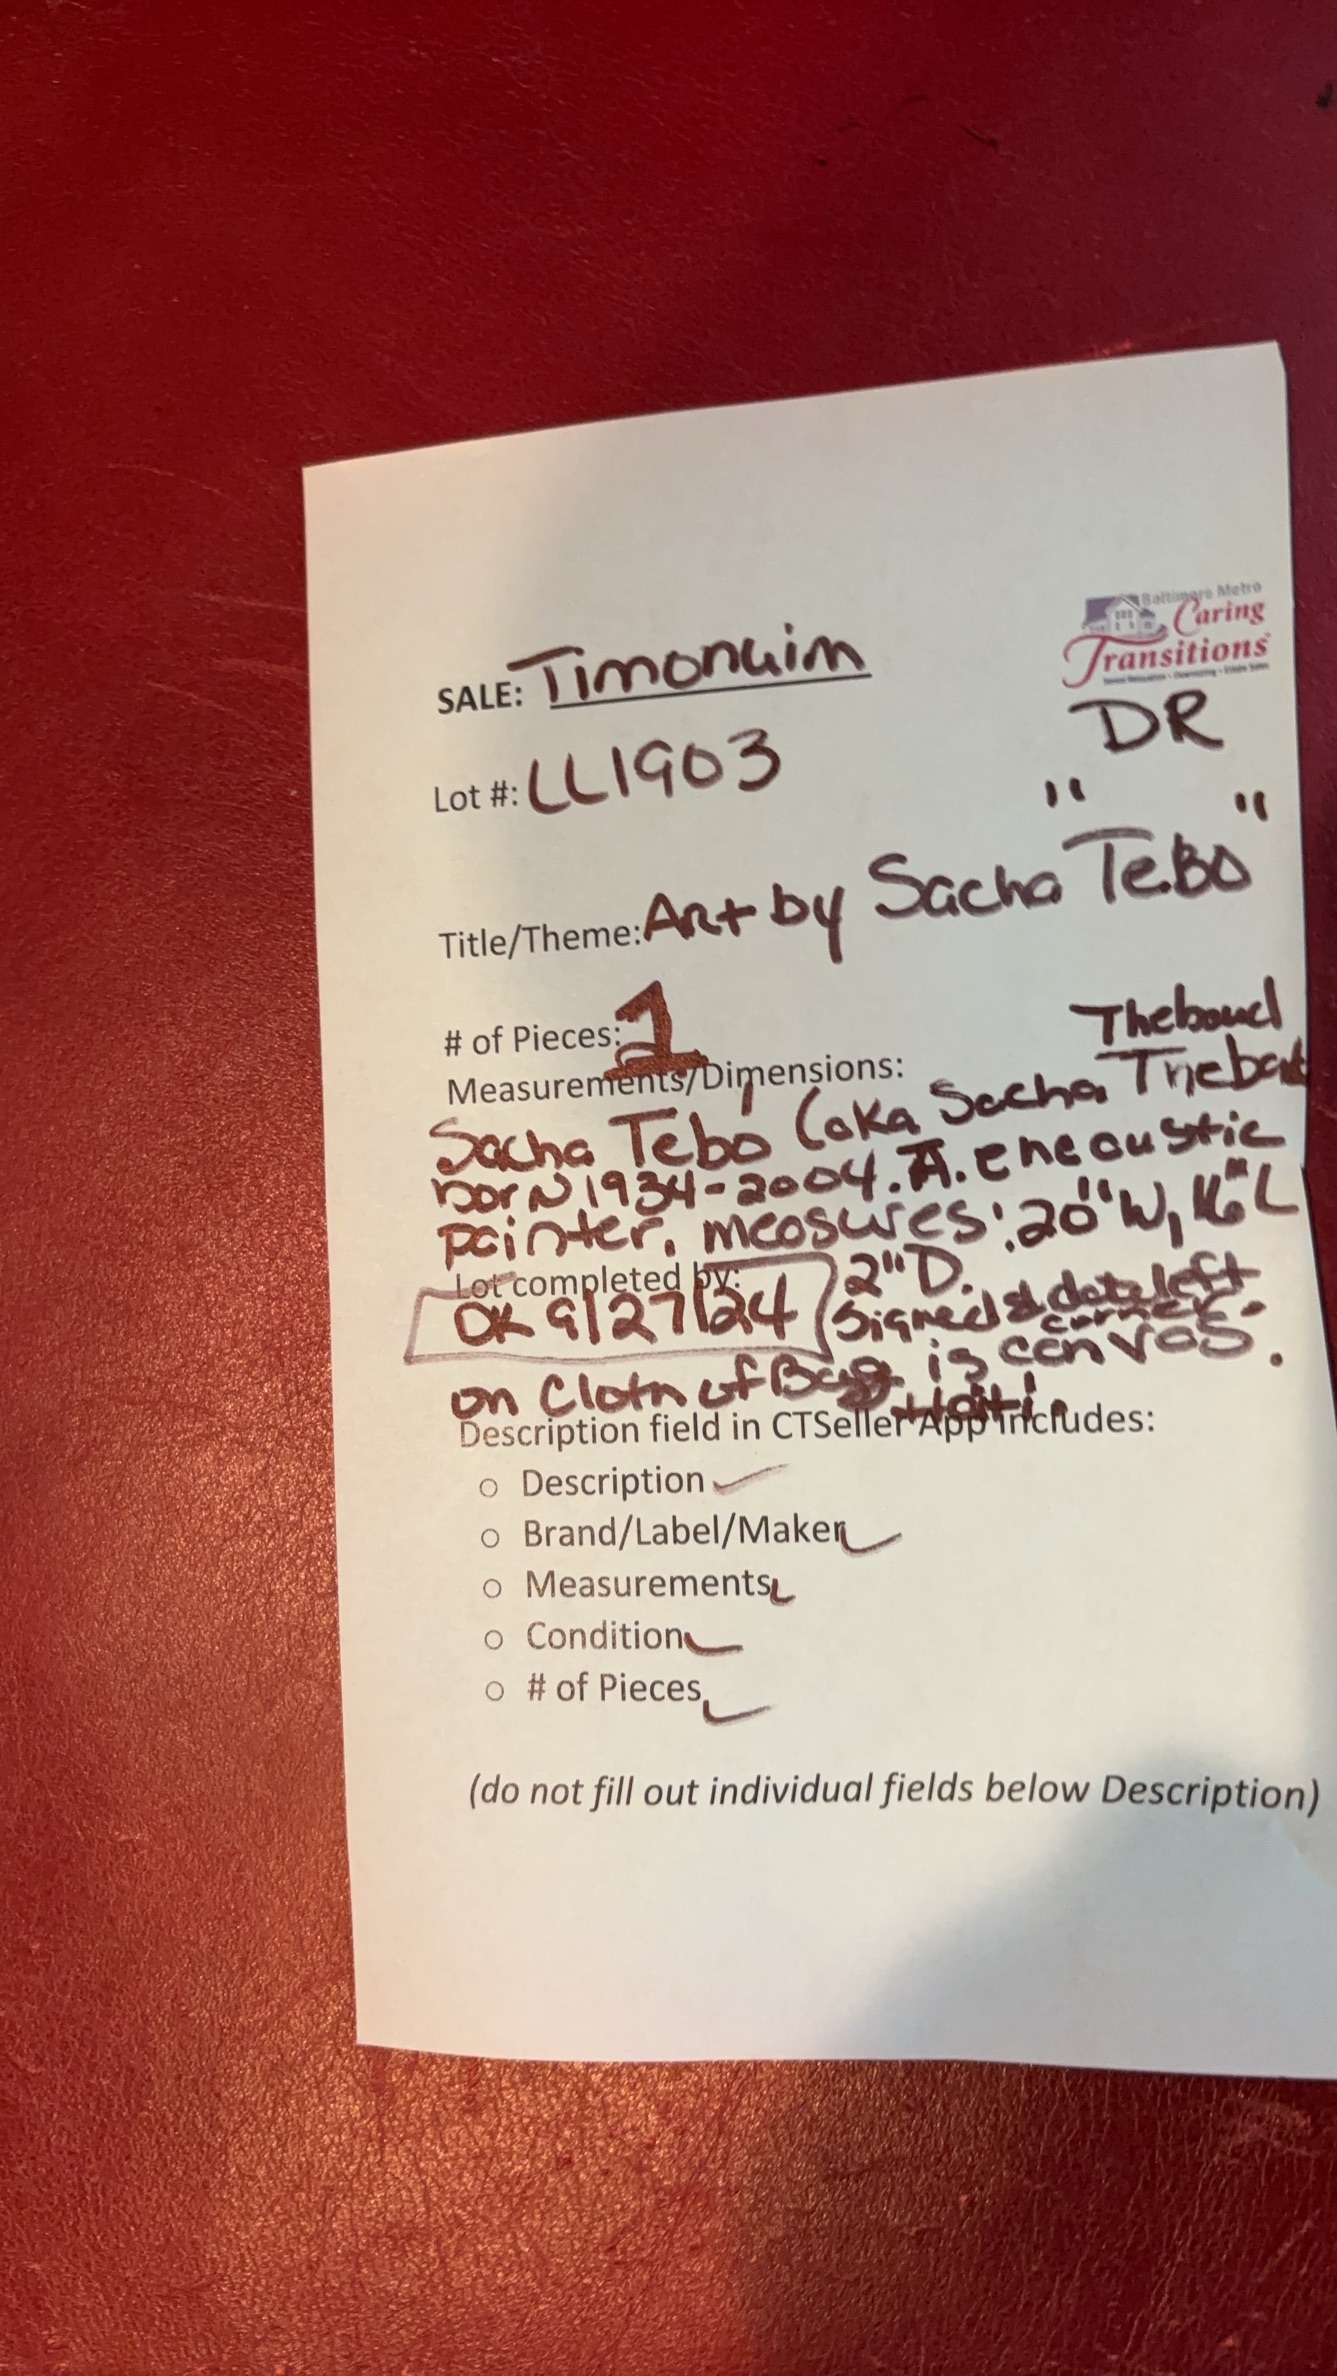 Baltimore Metro
Caring
Transitions
SALE: Timonuim
DR
Lot #: LL1903
" "
Title/Theme: Art by Sacha Tebo
# of Pieces: 1
Thebaud
Measurements/Dimensions:
Sacha Tebó (aka Sacha
born 1934-2004. A. encaustic
painter. measures: 20"W, 16"L
Lot completed by: 2"D.
OK 9/27/24 Signed & date left
corner.
on Cloth of Bag is canvas.
Haiti.
Description field in CTSeller App includes:
○ Description
○ Brand/Label/Maker
○ Measurements
○ Condition
○ # of Pieces
(do not fill out individual fields below Description)